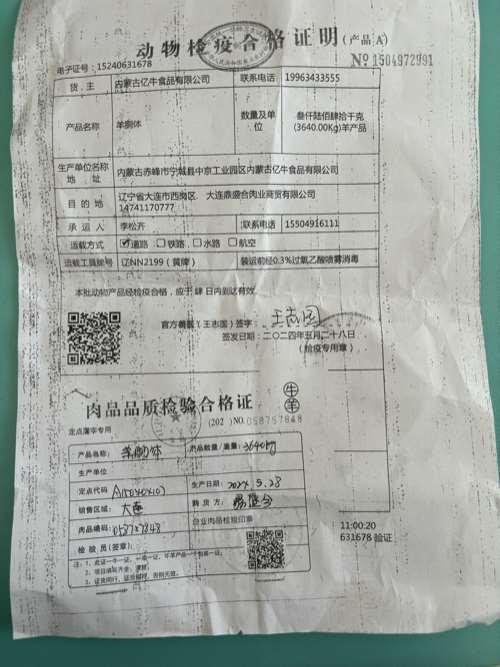 动物检疫合格证明(产品 A)
电子证号：15240631678
№ 1504972991
货 主 内蒙古亿牛食品有限公司 联系电话 19963433555
产品名称 羊胴体 数量及单位 叁仟陆佰肆拾千克(3640.00Kg)羊产品
生产单位名称地 址 内蒙古赤峰市宁城县中京工业园区内蒙古亿牛食品有限公司
目 的 地 辽宁省大连市西岗区 大连鼎盛合肉业商贸有限公司
14741170777
承 运 人 李松齐 联系电话 15504916111
运载方式 ☑道路 □铁路 □水路 □航空
运载工具牌号 辽NN2199（黄牌） 装运前经0.3%过氧乙酸喷雾消毒
本批动物产品经检疫合格，应于 肆 日内到达有效。
官方兽医（王志国）签字： 王志国
签发日期：二〇二四年五月二十八日
（检疫专用章）
牛
羊
肉品品质检验合格证
定点屠宰专用
(202 ) NO.058757848
产品名称： 羊胴体 产品数量/重量： 3640kg
生产单位
定点代码 生产日期： 2024.5.28
销售区域： 大连 购 货 方：
肉品编码： 058757848 企业肉品检验印章
检 验 员(签章)：
11:00:20
631678 验证
注：1、此证一车一证、一店一证，
3、证货同行，证否相符，否则无效。